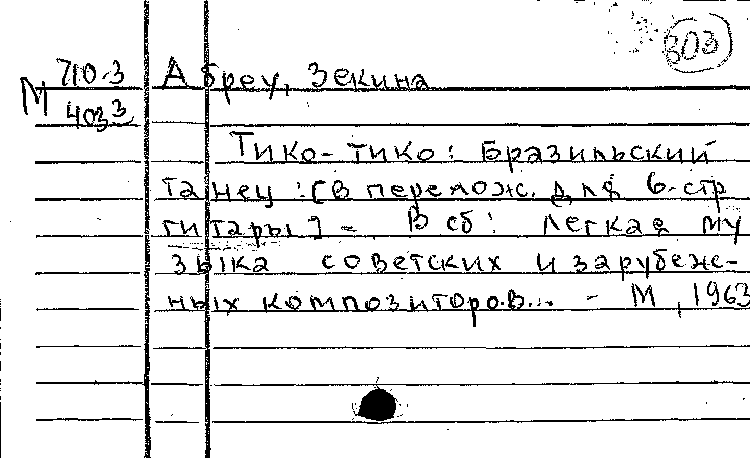 303
М 710-3
4033
Абреу, Зекина
Тико-тико: Бразильский
танец: [В перелож. для 6-стр
гитары] - В сб: Легкая му
зыка советских и зарубеж-
ных композиторов... - М, 1963